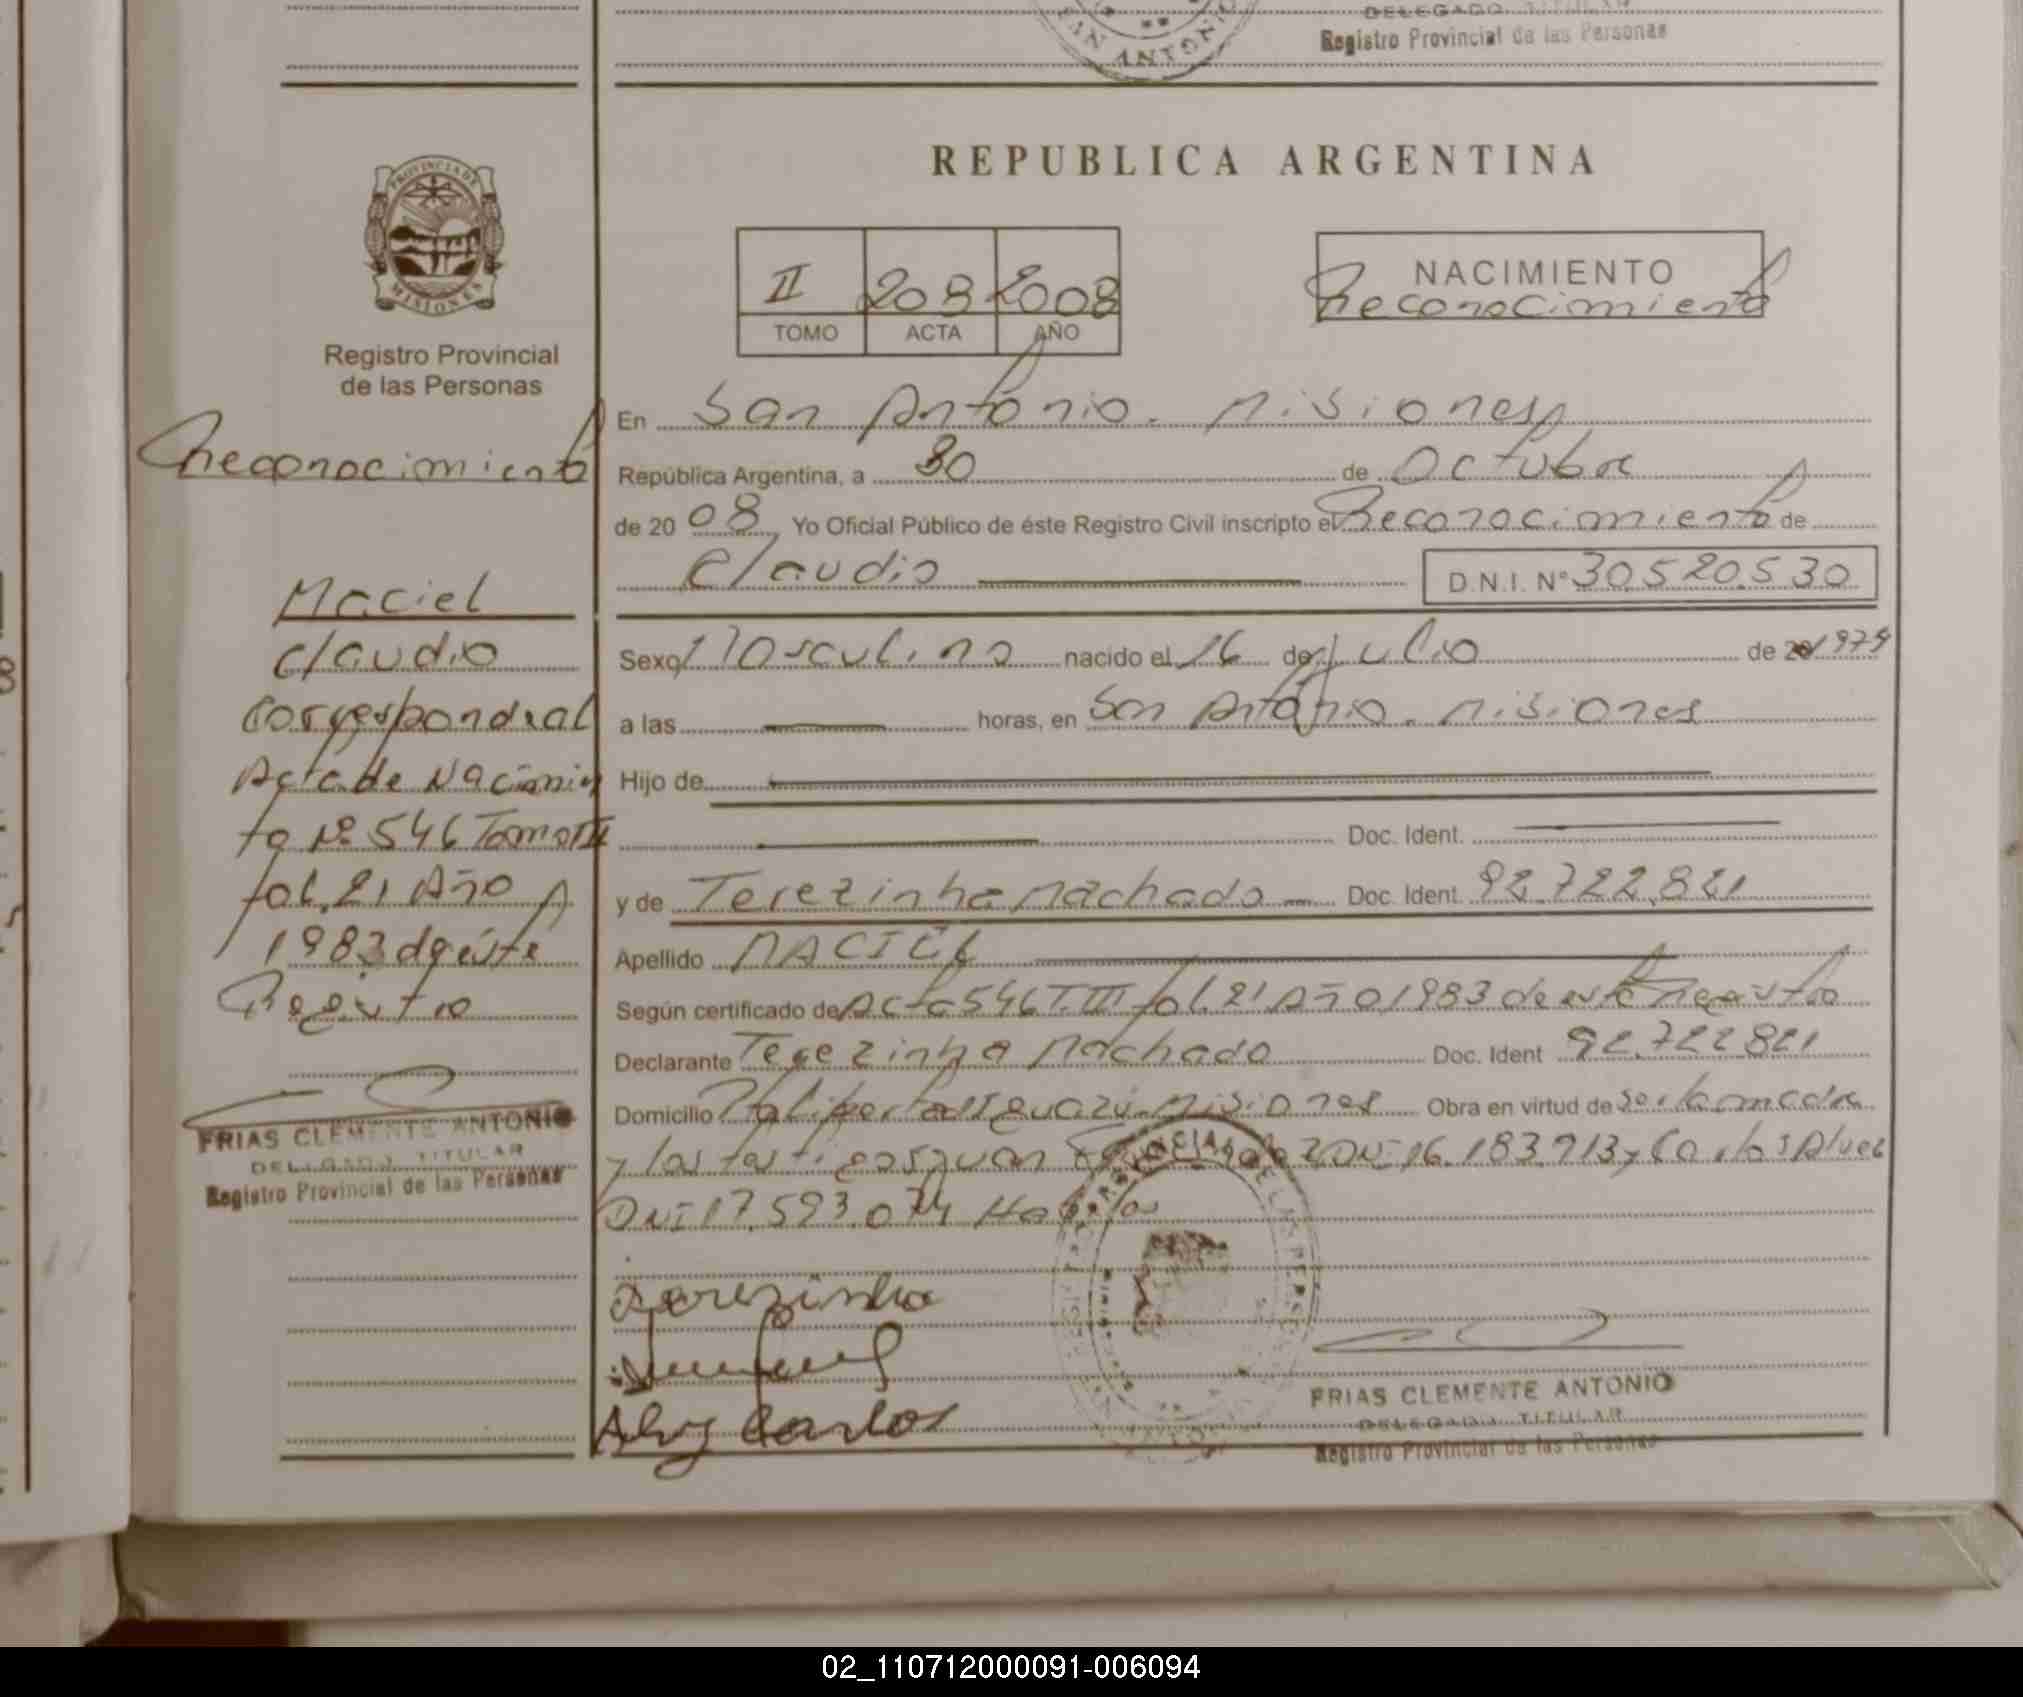 SAN ANTONIO
DELEGADO TITULAR
Registro Provincial de las Personas
PROVINCIA DE
MISIONES
Registro Provincial
de las Personas
Reconocimiento
Maciel
Claudio
Correspondeal
Acta de Nacimien
to Nº 546 Tomo III
fol. 21 Año
1983 de éste
Registro
FRIAS CLEMENTE ANTONIO
DELEGADO TITULAR
Registro Provincial de las Personas
REPUBLICA ARGENTINA
II 208 2008
TOMO ACTA AÑO
NACIMIENTO
Reconocimiento
En San Antonio. Misiones
República Argentina, a 30 de Octubre
de 2008 Yo Oficial Público de éste Registro Civil inscripto el Reconocimiento de
Claudio D.N.I. Nº 30.520.530
Sexo Masculino nacido el 16 de Julio de 20 1979
a las horas, en San Antonio. Misiones
Hijo de
Doc. Ident.
y de Terezinha Machado Doc. Ident. 92.722.821
Apellido MACIEL
Según certificado de Acta 546 T. III fol. 21 Año 1983 de este Registro
Declarante Terezinha Machado Doc. Ident 92.722821
Domicilio Pto Libertad Iguazú. Misiones Obra en virtud de ser la madre
y los testigos Juan DNI 16.183.713 y Carlos Alvez
DNI 17.593.074
Terezinha
Alvez Carlos
FRIAS CLEMENTE ANTONIO
DELEGADO TITULAR
Registro Provincial de las Personas
02_110712000091-006094